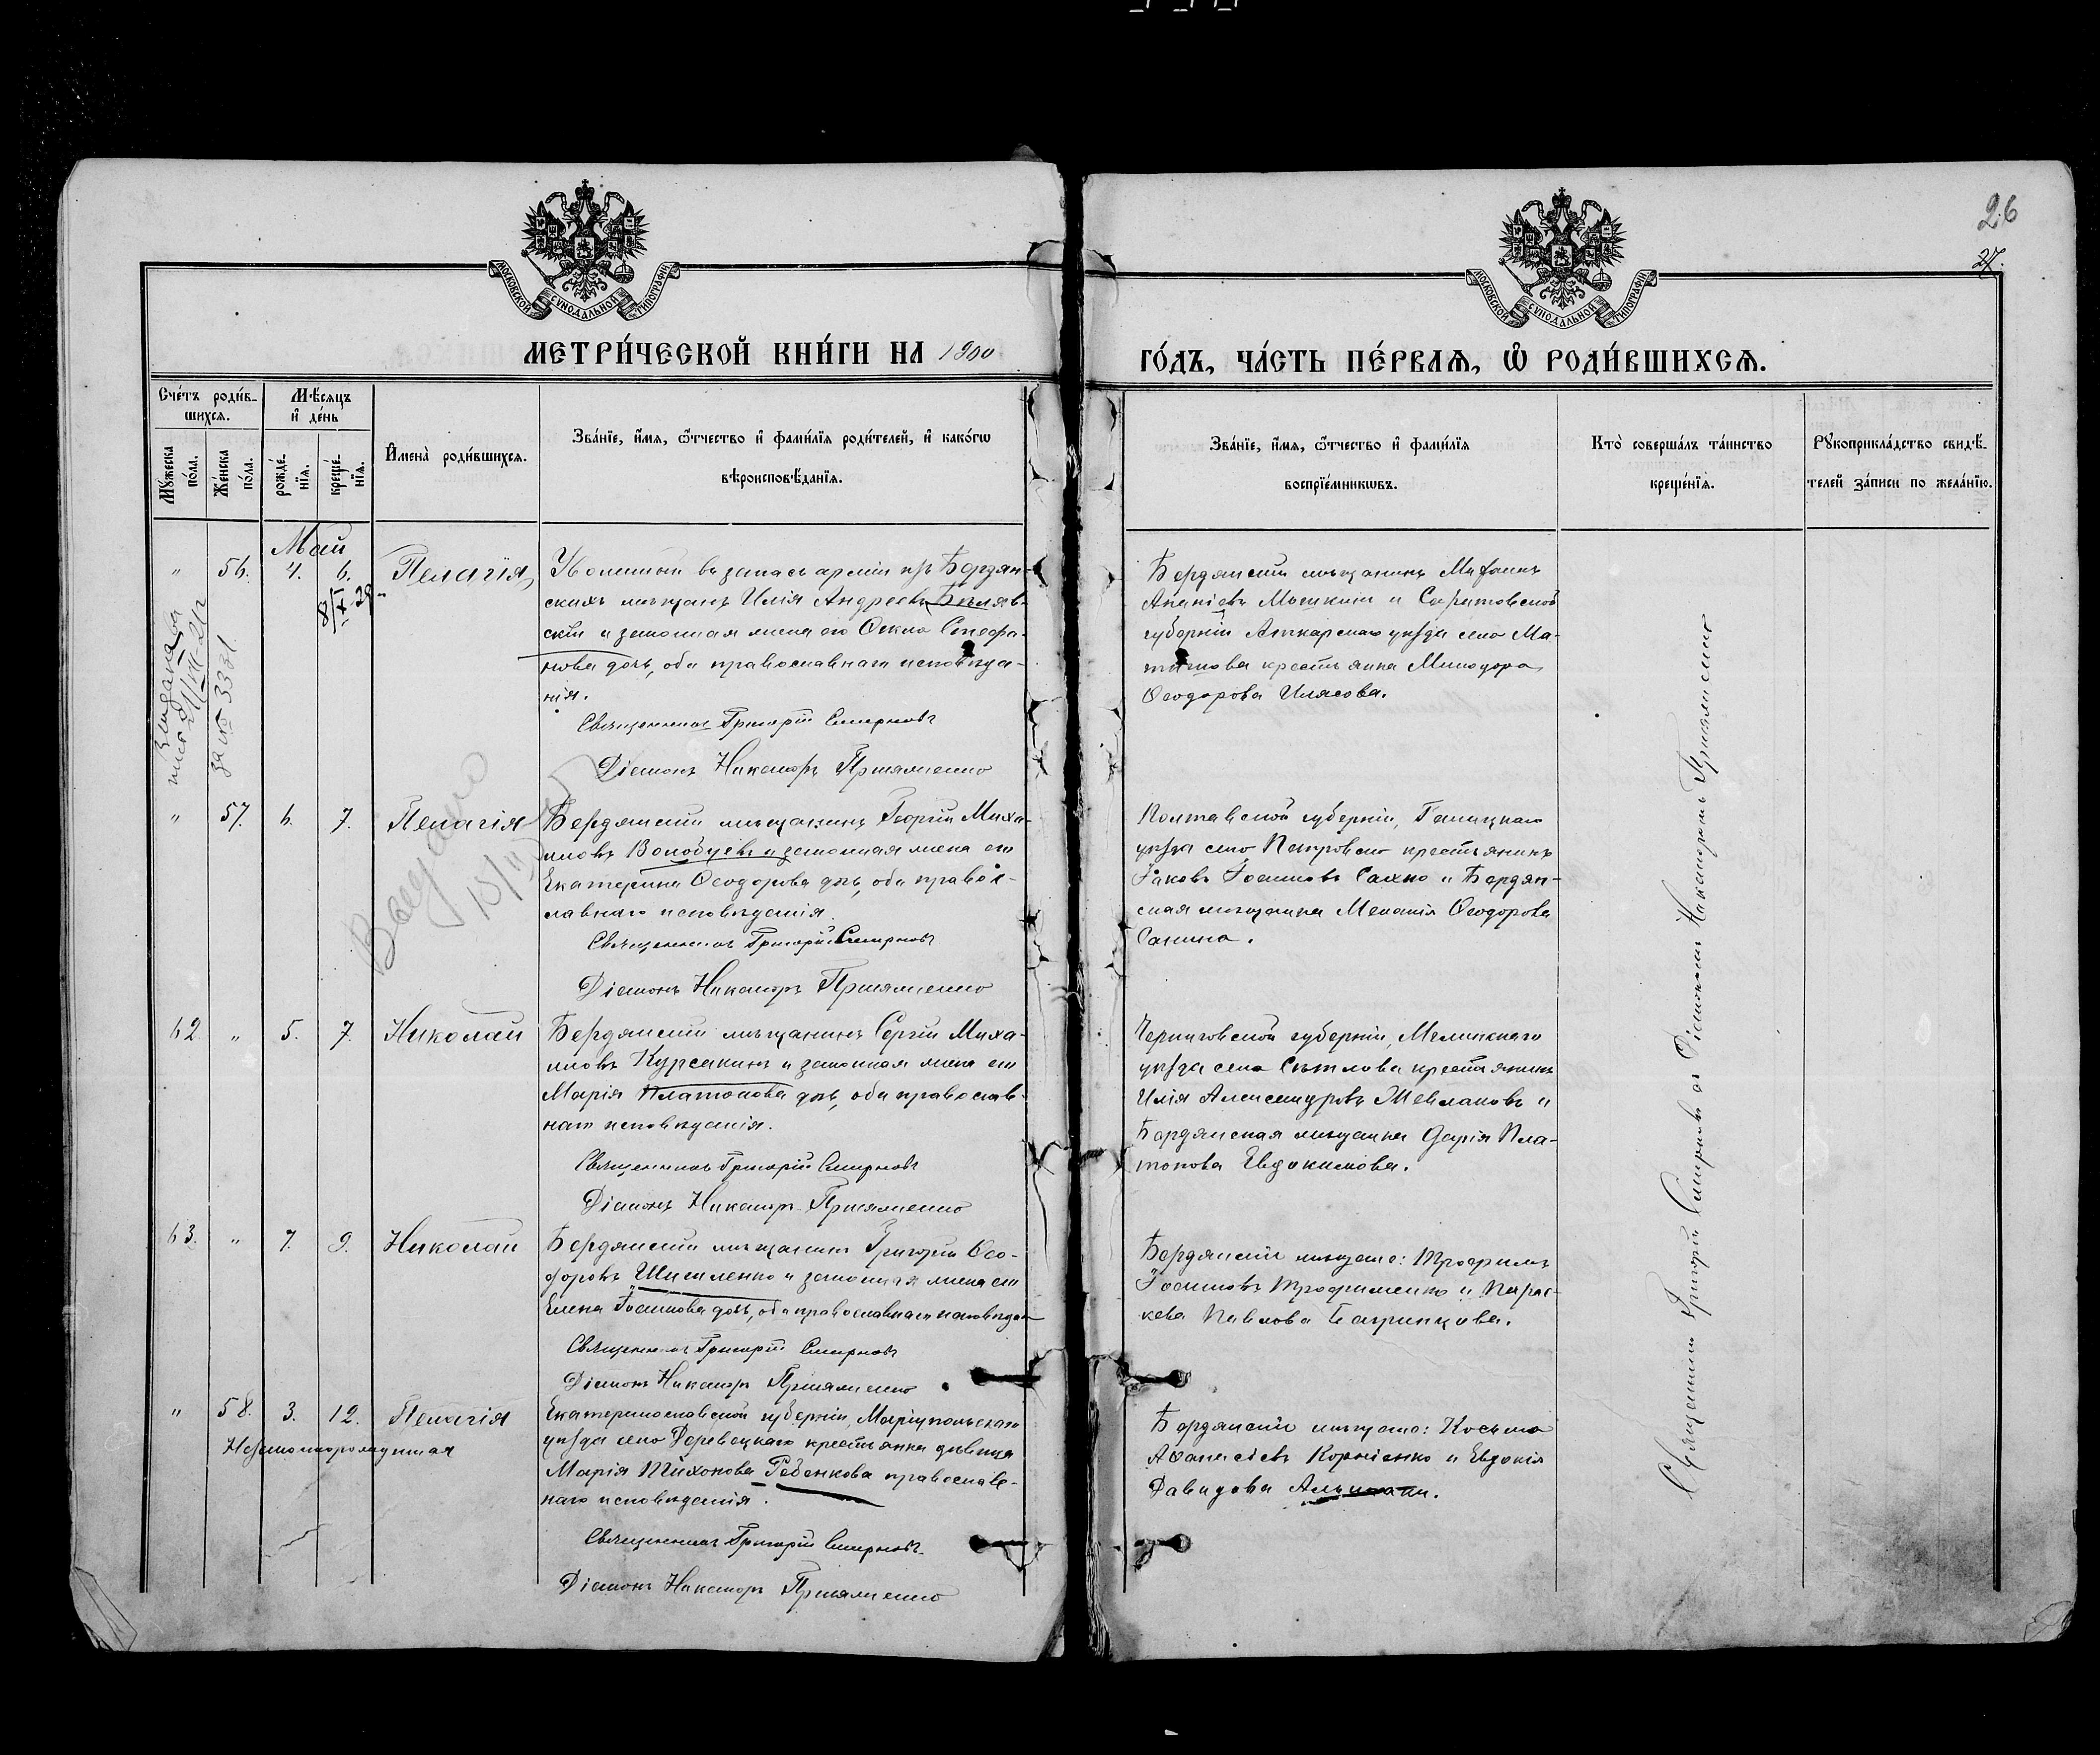 26
27.
МОСКОВСКОЙ СУНОДАЛЬНОЙ ТИПОГРАФІИ
МОСКОВСКОЙ СУНОДАЛЬНОЙ ТИПОГРАФІИ
МЕТРИ́ЧЕСКОЙ КНИ́ГИ НА 1900
ГО́ДЪ, ЧА́СТЬ ПЕ́РВАѦ, Ѽ РОДИ́ВШИХСѦ.
Сче́тъ роди́в-
шихсѧ.
Мѣ́сѧцъ
и҆ де́нь
Мꙋ́жеска
по́ла.
Же́нска
по́ла.
рожде́-
нїѧ.
креще́-
нїѧ.
И҆мена̀ роди́вшихсѧ.
Зва́нїе, и҆́мѧ, ѻ҆́тчество и҆ фами́лїѧ роди́телей, и҆ како́гѡ
вѣроисповѣ́данїѧ.
Зва́нїе, и҆́мѧ, ѻ҆́тчество и҆ фами́лїѧ
воспрїе́мникѡвъ.
Кто̀ соверша́лъ та́инство
креще́нїѧ.
Рꙋкоприкла́дство свидѣ́-
телей за́писи по жела́нїю.
Май
" 56. 4. 6. Пелагія
Уволенный въ запасъ арміи изъ Бердян-
скихъ мѣщанъ Илія Андреевъ Бѣляв-
скій и законная жена его Ѳекла Стефа-
нова дочь, оба православнаго исповѣда-
нія.
Священникъ Григорій Смирновъ
Діаконъ Никаноръ
Бердянскій мѣщанинъ
Ананіевъ и Саратовской
губерніи Аткарскаго уѣзда села Ма-
крестьянка Минодора
Ѳеодорова Иласова.
за № 3331
" 57. 6. 7. Пелагія
Бердянскій мѣщанинъ Георгій Миха-
иловъ Волобуевъ и законная жена его
Екатерина Ѳеодорова дочь, оба правос-
лавнаго исповѣданія.
Священникъ Григорій Смирновъ
Діаконъ Никаноръ
Выдано
Полтавской губерніи,
уѣзда села Петровско крестьянинъ
Іаковъ Іоанновъ Сахно и Бердян-
ская мѣщанка Меланія Ѳеодорова
Санина.
62. " 5. 7. Николай
Бердянскій мѣщанинъ Сергій Миха-
иловъ Курсакинъ и законная жена его
Марія Платонова дочь, оба православ-
наго исповѣданія.
Священникъ Григорій Смирновъ
Діаконъ Никаноръ
Черниговской губерніи, Мглинскаго
уѣзда села Свѣтлова крестьянинъ
Илія Александровъ Жевлаковъ и
Бердянская мѣщанка Дарія Пла-
тонова Евдокимова.
63. " 7. 9. Николай
Бердянскій мѣщанинъ Григорій Ѳео-
доровъ Шишленко и законная жена его
Елена Іоаннова дочь, оба православнаго исповѣдан
Священникъ Григорій Смирновъ
Діаконъ Никаноръ
Бердянскіе мѣщане: Трофимъ
Іоанновъ Трофименко и Парас-
кева Павлова Багринцова.
" 58. 3. 12. Пелагія
Незаконнорожденная
Екатеринославской губерніи, Маріупольскаго
уѣзда села крестьянка дѣвица
Марія Тихонова Ребенкова православ-
наго исповѣданія.
Священникъ Григорій Смирновъ
Діаконъ Никаноръ
Бердянскіе мѣщане: Косьма
Аѳанасіевъ Корніенко и Евдокія
Давидова
Священникъ Григорій Смирновъ съ Діакономъ Никаноромъ